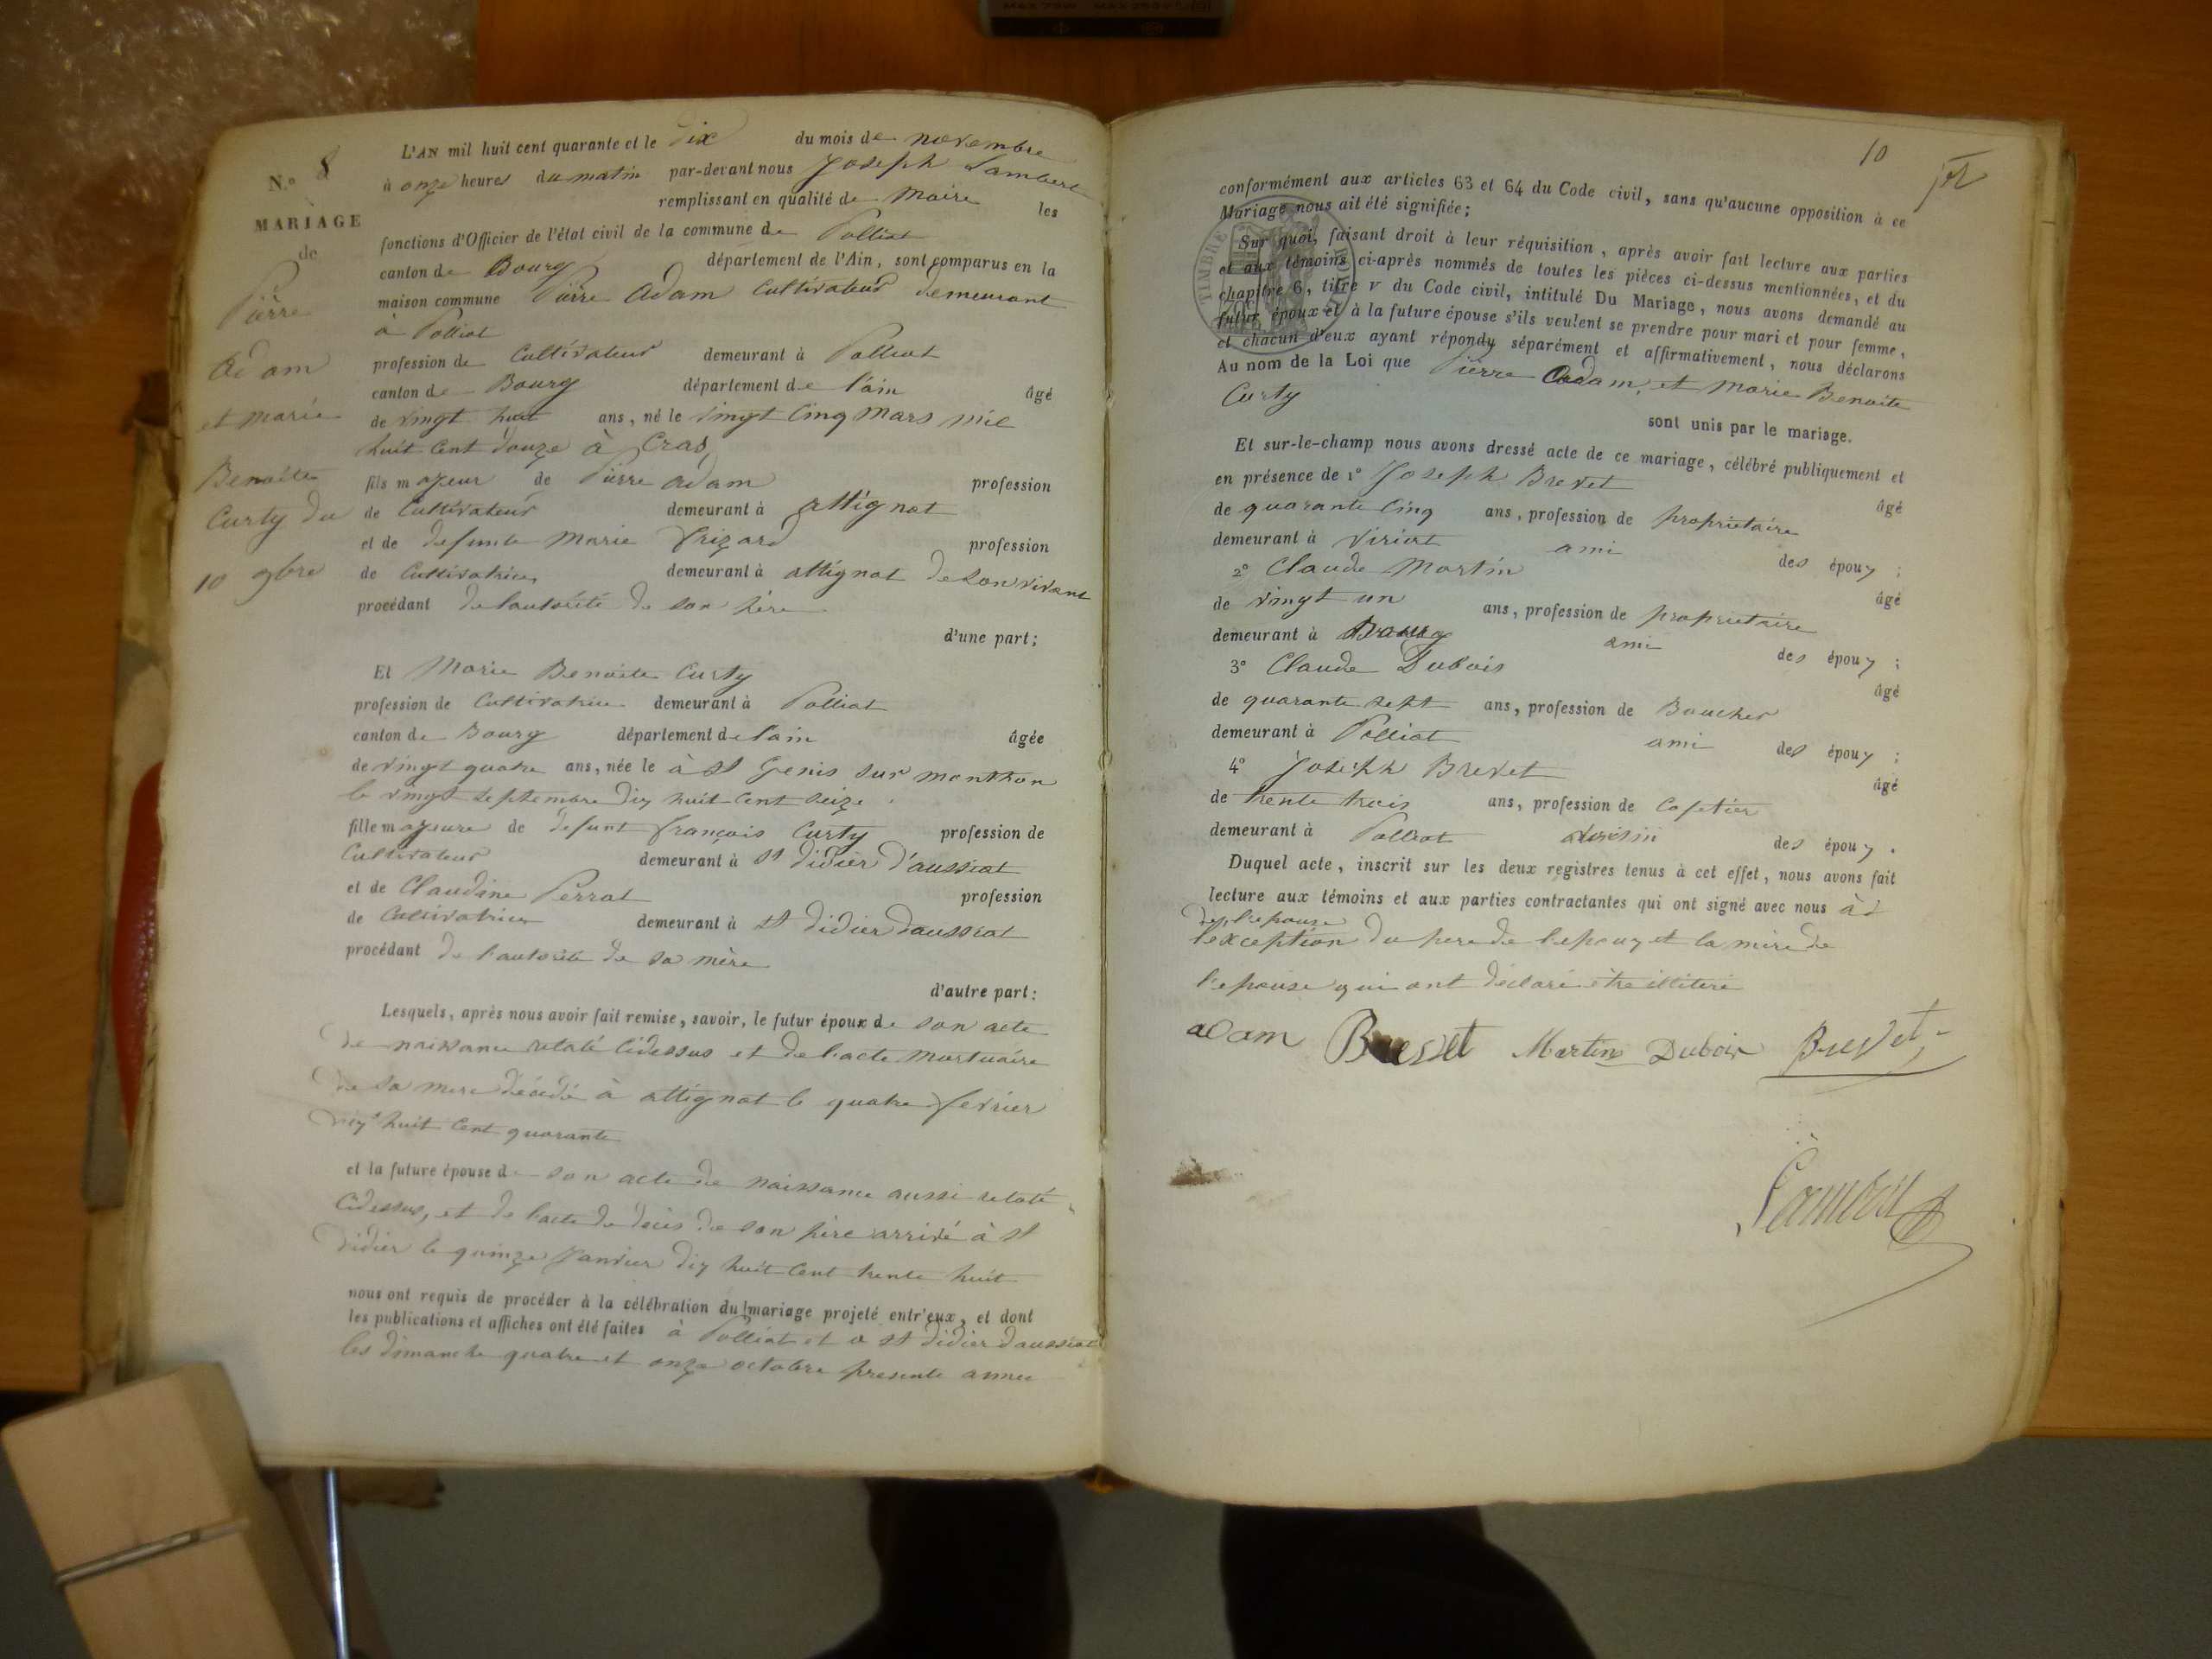 N.° 8
MARIAGE
de
Pierre
Adam
et marie
Benoite
Curty du
10 9bre
L'AN mil huit cent quarante et le dix du mois de novembre
à onze heures du matin par-devant nous Joseph Lambert
remplissant en qualité de Maire les
fonctions d'Officier de l'état civil de la commune de Polliat
canton de Bourg département de l'Ain, sont comparus en la
maison commune Pierre Adam Cultivateur demeurant
à Polliat
profession de Cultivateur demeurant à Polliat
canton de Bourg département de l'ain âgé
de vingt huit ans, né le vingt cinq mars mil
huit cent douze à Cras
fils majeur de Pierre adam profession
de Cultivateur demeurant à attignat
et de defunte Marie profession
de Cultivatrice demeurant à attignat de son vivant
procédant de l'autorité de son père
d'une part;
Et Marie Benoite Curty
profession de Cultivatrice demeurant à Polliat
canton de Bourg département de l'ain âgée
de vingt quatre ans, née le à St Genis sur menthon
le vingt septembre dix huit cent seize
fille majeure de defunt françois Curty profession de
Cultivateur demeurant à St didier d'aussiat
et de Claudine Perrat profession
de Cultivatrice demeurant à St didier daussiat
procédant de l'autorité de sa mère
d'autre part:
Lesquels, après nous avoir fait remise, savoir, le futur époux de son acte
de naissance relaté cidessus et de l'acte mortuaire
de sa mere décédé à attignat le quatre fevrier
dix huit cent quarante
et la future épouse de son acte de naissance aussi relaté
cidessus, et de l'acte de décès de son père arrivé à St
didier le quinze Janvier dix huit cent trente huit
nous ont requis de procéder à la célébration du mariage projeté entr'eux, et dont
les publications et affiches ont été faites à Polliat et a St didier daussiat
les dimanche quatre et onze octobre presente annee
10
conformément aux articles 63 et 64 du Code civil, sans qu'aucune opposition à ce
Mariage nous ait été signifiée;
TIMBRE
Sur quoi, faisant droit à leur réquisition, après avoir fait lecture aux parties
et aux témoins ci-après nommés de toutes les pièces ci-dessus mentionnées, et du
chapitre 6, titre V du Code civil, intitulé Du Mariage, nous avons demandé au
futur époux et à la future épouse s'ils veulent se prendre pour mari et pour femme,
et chacun d'eux ayant répondu séparément et affirmativement, nous déclarons
Au nom de la Loi que Pierre Adam, et Marie Benoite
Curty
sont unis par le mariage.
Et sur-le-champ nous avons dressé acte de ce mariage, célébré publiquement et
en présence de 1° Joseph Brevet
âgé
de quarante cinq ans, profession de proprietaire
demeurant à Viriat ami des époux;
2° Claude Martin
âgé
de vingt un ans, profession de proprietaire
demeurant à Bourg ami des époux;
3° Claude Dubois
âgé
de quarante sept ans, profession de Boucher
demeurant à Polliat ami des époux;
4° Joseph Brevet
âgé
de trente trois ans, profession de Cafetier
demeurant à Polliat voisin des époux.
Duquel acte, inscrit sur les deux registres tenus à cet effet, nous avons fait
lecture aux témoins et aux parties contractantes qui ont signé avec nous à
de l'epouse
l'exception du pere de l'epoux et la mère de
l'epouse qui ont déclaré être illiteré
adam Martin Dubois Brevet
Lambert